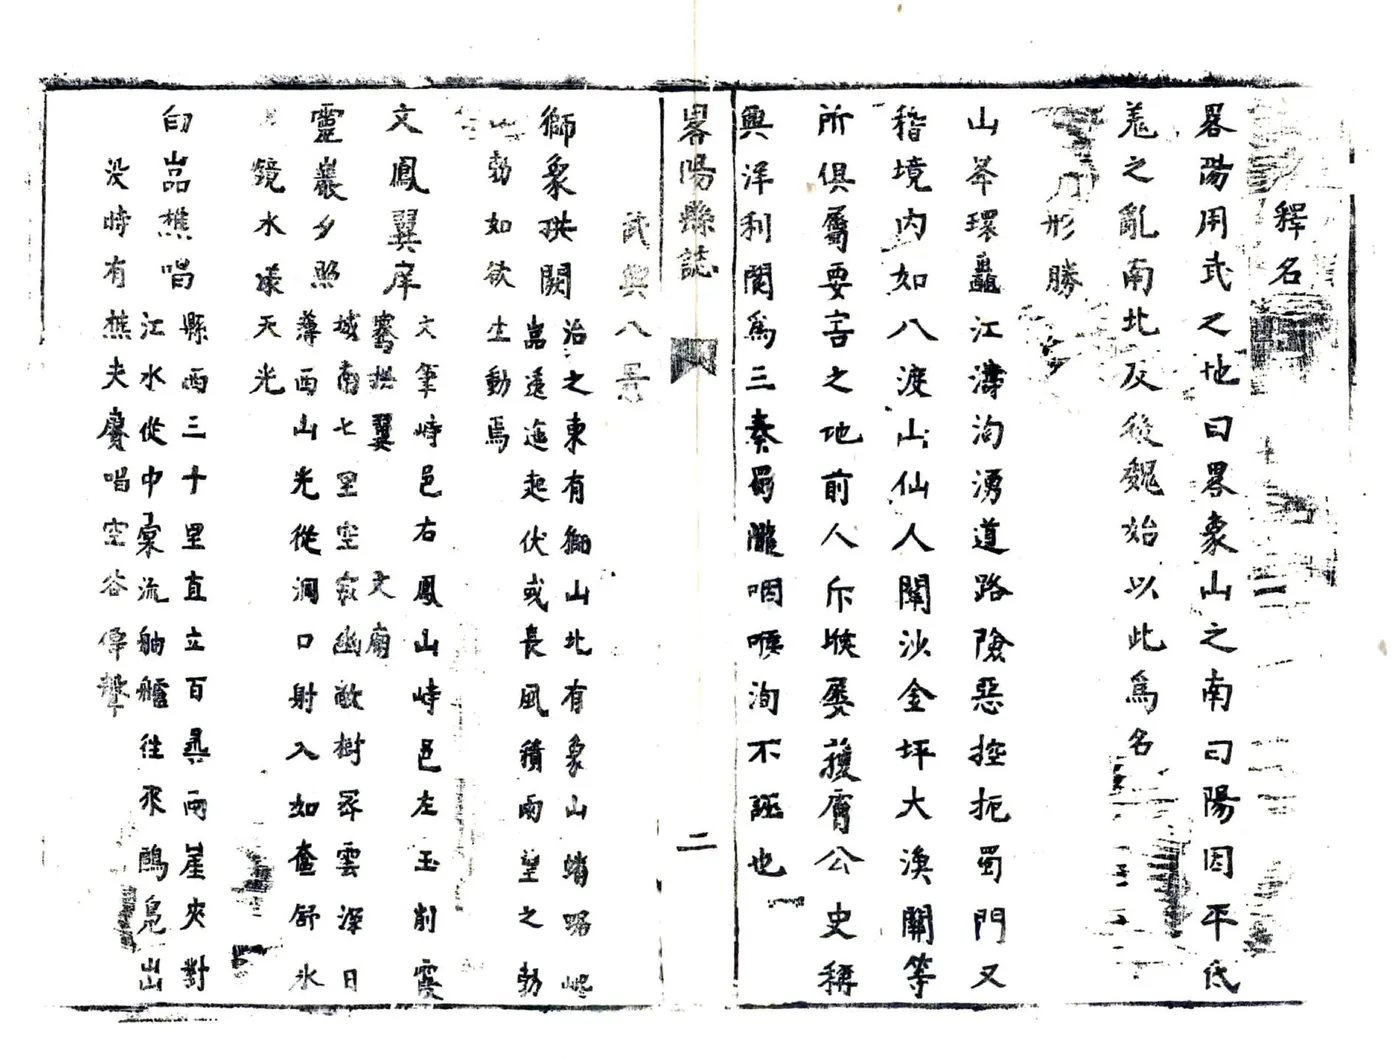 釋名
畧陽用武之地曰畧象山之南曰陽因平氐
羗之亂南北反後魏始以此爲名
形勝
山峯環矗江濤洶湧道路險惡控扼蜀門又
稽境内如八渡山仙人關沙金坪大漁關等
所俱屬要害之地前人斥堠屡護膚公史稱
興洋利閬爲三秦蜀隴咽喉洵不誣也
畧陽縣誌
二
武興八景
獅象拱闕
治之東有獅山北有象山蟠踞
嵓逶迤起伏或長風積雨望之勃
勃如欲生動焉
文鳳翼庠
文筆峙邑右鳳山峙邑左玉削霞
騫拱翼文廟
靈巖夕照
城南七里空寂幽敞樹罙雲深日
薄西山光從洞口射入如奩舒氷
鏡水漾天光
白嵓樵唱
縣西三十里直立百尋兩崖夾對
江水從中槖流舳艫往來鷗鳧出
没時有樵夫賡唱空谷傳聲